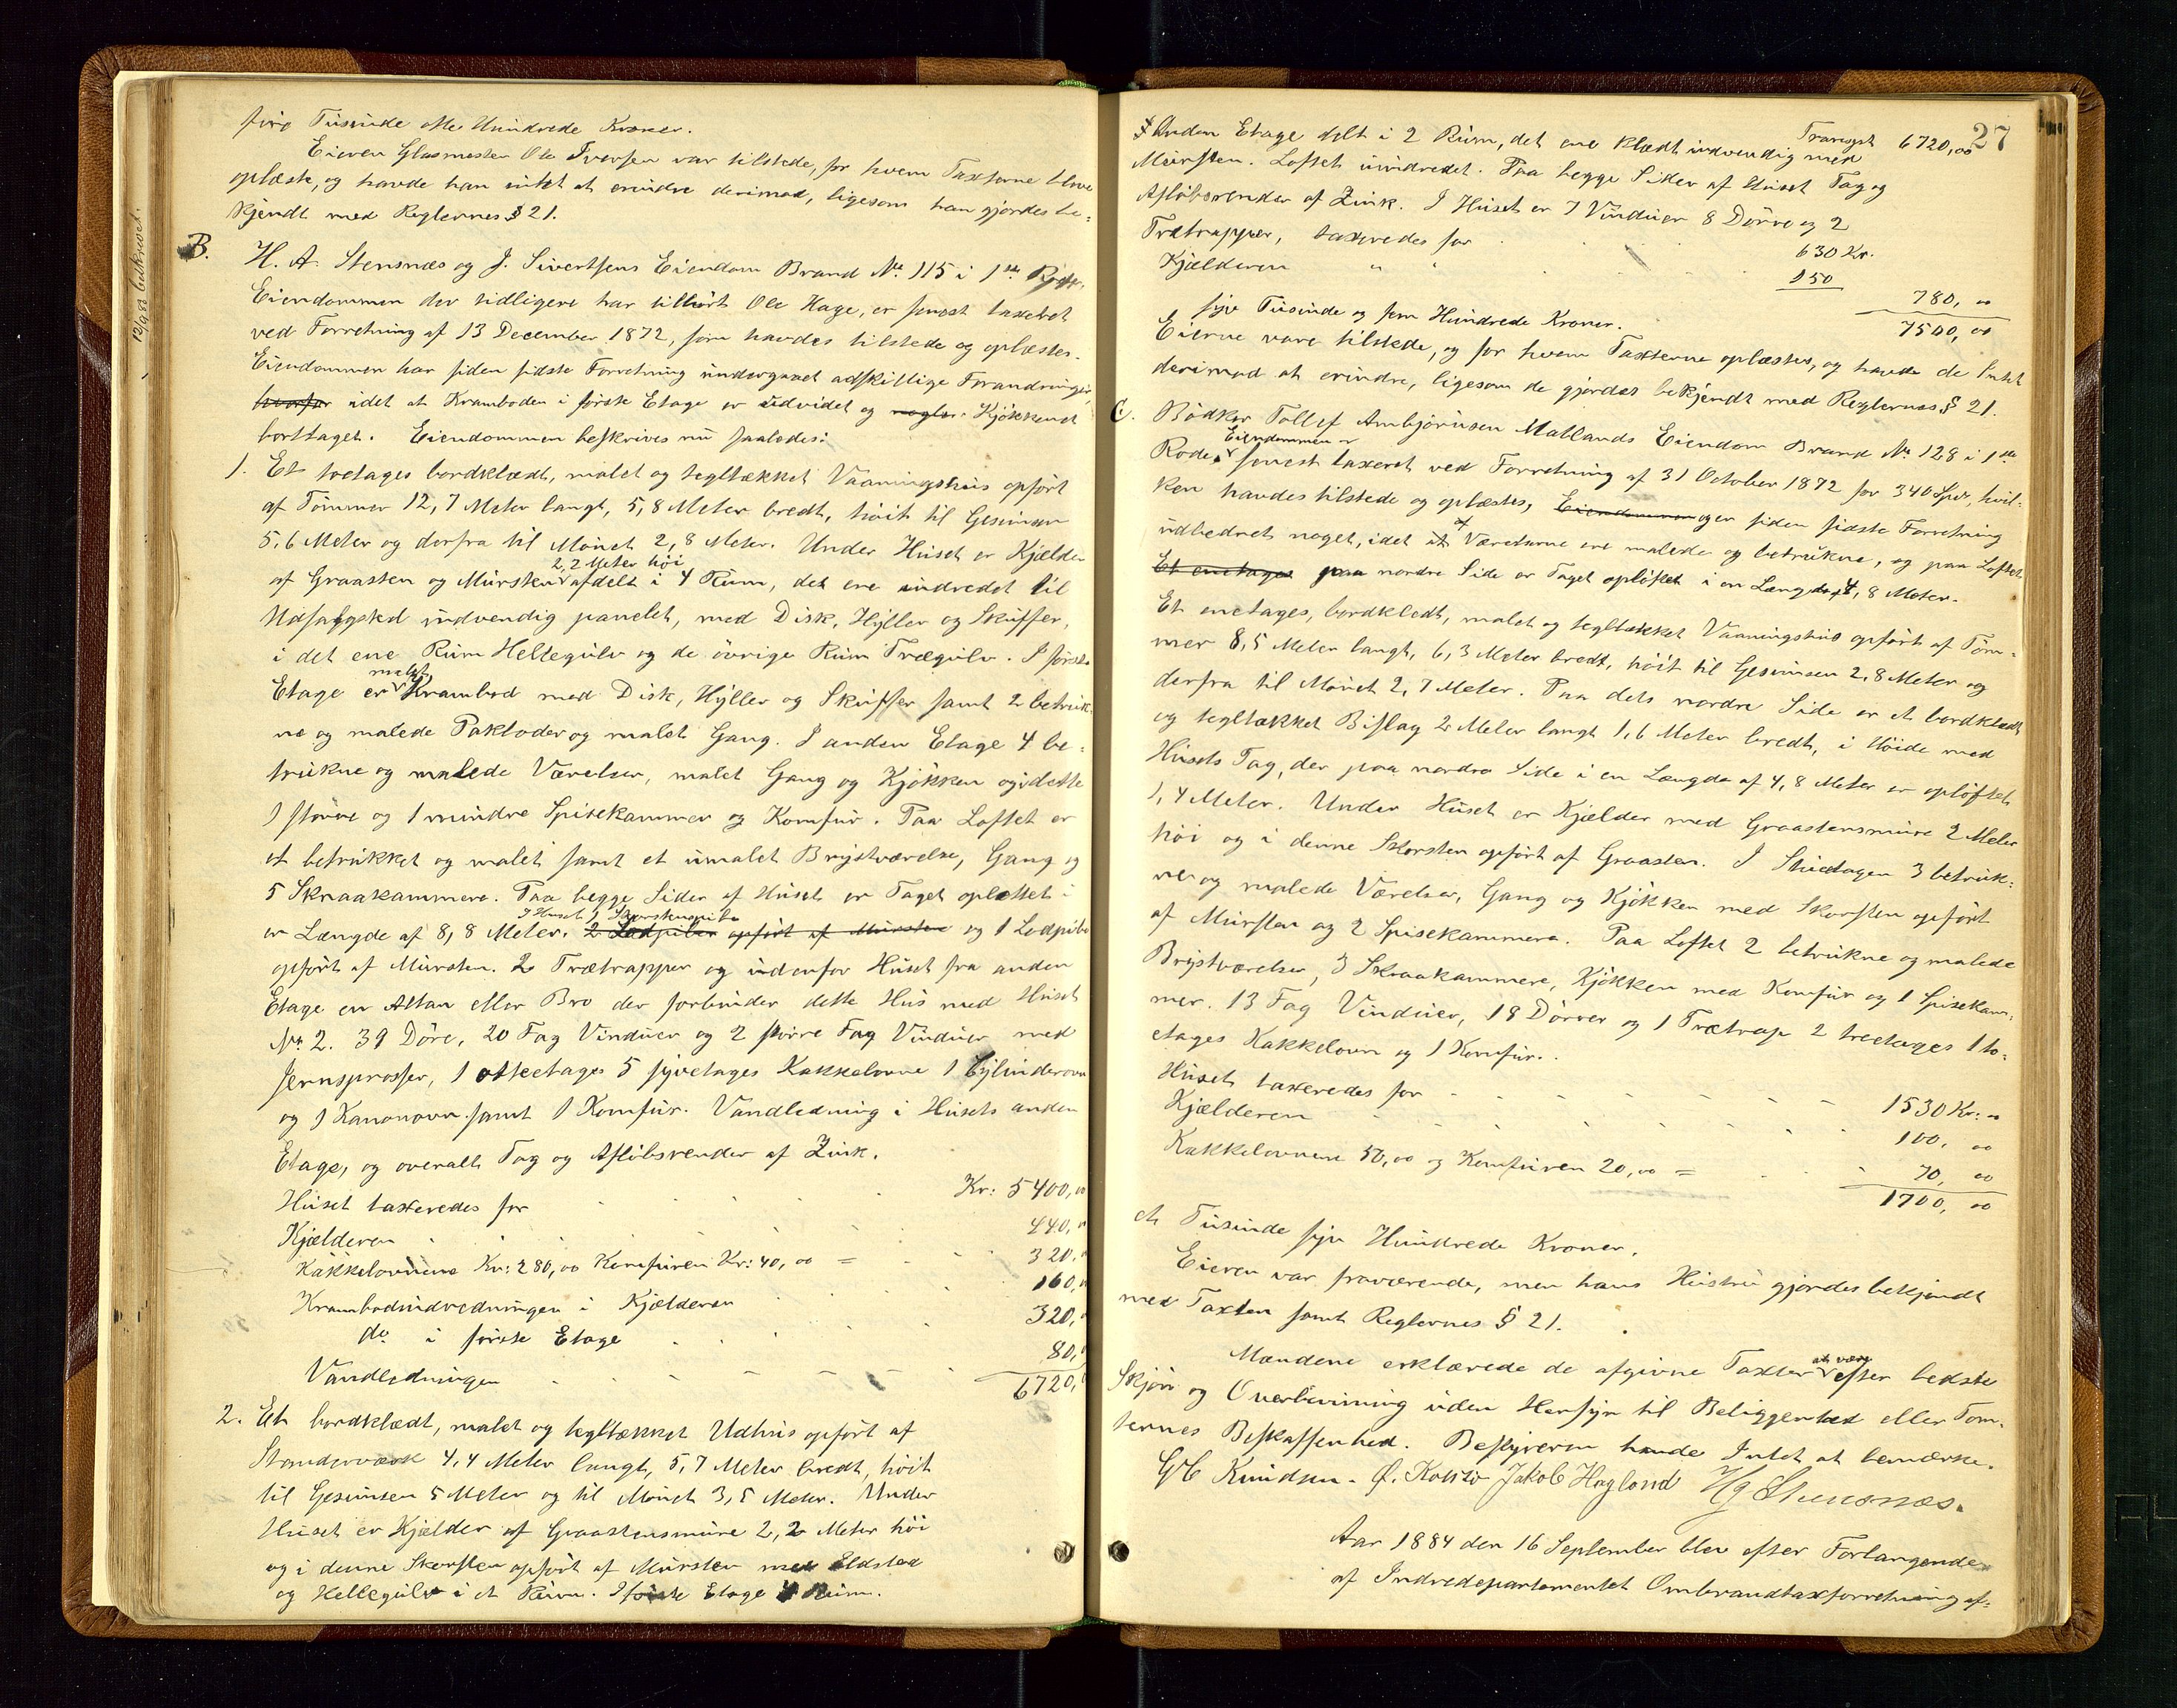 fire Tusinde otte Hundrede Kroner.
Eieren Glasmester Ole Iversen var tilstede, for hvem Taxterne blev
oplæste, og havde han intet at erindre derimod, ligesom han gjordes be-
kjendt med Reglernes § 21.
B. H. A. Stensnæs og J. Sivertsens Eiendom Brand No. 115 i 1ste Rode,
Eiendommen der tidligere har tilhørt Ole Hage, er senest taxeret
ved Forretning af 13 December 1872, som havdes tilstede og oplæstes.
Eiendommen har siden sidste Forretning undergaaet adskillige Forandringer,
hvorfor idet at Kramboden i første Etage er udvidet og nogle Kjøkkenet
borttaget. Eiendommen beskrives nu saaledes:
1. Et toetages bordklædt, malet og tegltækket Vaaningshus opført
af Tømmer 12,7 Meter langt, 5,8 Meter bredt, høit til Gesimsen
5,6 Meter og derfra til Mønet 2,8 Meter. Under Huset er Kjælder
2,2 Meter høi
af Graasten og Mursten afdelt i 4 Rum, det ene indredet til
Udsalgssted indvendig panelet, med Disk, Hyller og Skuffer,
i det ene Rum Hellegulv og de øvrige Rum Trægulv. I første
malet
Etage er Krambod med Disk, Hyller og Skuffer samt 2 betruk-
ne og malede Pakboder og malet Gang. I anden Etage 4 be-
trukne og malede Værelser, malet Gang og Kjøkken og i dette
1 større og 1 mindre Spisekammer og Komfur. Paa Loftet er
et betrukket og malet samt et umalet Brystværelse, Gang og
5 Skraakammere. Paa begge Sider af Huset er Taget opløftet i
I Huset 1 Skorstenspibe
en Længde af 8,8 Meter. 2 Lodpiber opført af Mursten og 1 Lodpibe
opført af Mursten. 2 Trætrapper og udenfor Huset fra anden
Etage en Altan eller Bro der forbinder dette Hus med Huset
No. 2. 39 Døre, 20 Fag Vinduer og 2 større Fag Vinduer med
Jernsprosser, 1 otteetages 5 syvetages Kakkelovne 1 Cylinderovn
og 1 Kanonovn samt 1 Komfur. Vandledning i Husets anden
Etage, og overalt Tag og Afløbsrender af Zink.
Huset taxeredes for Kr: 5400,00
Kjælderen 440,
Kakkelovnene Kr: 280,00 Komfuren Kr: 40,00 = 320,
Krambodindredningen i Kjælderen 160,
do i første Etage 320,
Vandledningen 80,
6720,
2. Et bordklædt, malet og tegltækket Udhus opført af
Standerværk 4,4 Meter langt, 5,7 Meter bredt, høit
til Gesimsen 5 Meter og til Mønet 3,5 Meter. Under
Huset er Kjælder af Graastensmure 2,2 Meter høi
og i denne Skorsten opført af Mursten med Ildsted
og Hellegulv i et Rum. I første Etage 4 Rum.
27
Transpt 6720,00
I Anden Etage delt i 2 Rum, det ene klædt indvendig med
Mursten. Loftet uindredet. Paa begge Sider af Huset Tag og
Afløbsrender af Zink. I Huset er 7 Vinduer 8 Dørre og 2
Trætrapper, taxeredes for 630 Kr.
Kjælderen " " 150
780,00
7500,00
syv Tusinde og fem Hundrede Kroner.
Eierne vare tilstede, og for hvem Taxterne oplæstes, og havde de Intet
derimod at erindre, ligesom de gjordes bekjendt med Reglernes § 21.
C. Bødker Tollef Ambjørnsen Matlands Eiendom Brand No. 128 i 1ste
Eiendommen er
Rode, senest taxeret ved Forretning af 31 October 1872 for 340 Spd, hvil-
ken havdes tilstede og oplæstes, Eiendommen og er siden sidste Forretning
udbedret noget, idet at Værelserne ere malede og betrukne, og paa Loftet
Et enetages paa nordre Side er Taget opløftet i en Længde af 4,8 Meter.
Et enetages, bordklædt, malet og tegltækket Vaaningshus opført af Tøm-
mer 8,5 Meter langt, 6,3 Meter bredt, høit til Gesimsen 2,8 Meter og
derfra til Mønet 2,7 Meter. Paa dets nordre Side er et bordklædt
og tegltækket Bislag 2 Meter langt 1,6 Meter bredt, i Høide med
Husets Tag, der paa nordre Side i en Længde af 4,8 Meter er opløftet
1,4 Meter. Under Huset er Kjælder med Graastensmure 2 Meter
høi og i denne Skorsten opført af Graasten. I Stueetagen 3 betruk-
ne og malede Værelser, Gang og Kjøkken med Skorsten opført
af Mursten og 2 Spisekammere. Paa Loftet 2 betrukne og malede
Brystværelser, 3 Skraakammere, Kjøkken med Komfur og 1 Spisekam-
mer. 13 Fag Vinduer, 18 Dørrer og 1 Trætrap 2 treetages 1 to-
etages Kakkelovn og 1 Komfur.
Huset taxeredes for 1530 Kr: 00
Kjælderen 100, 00
Kakkelovnene 50,00 og Komfuren 20,00 = 70, 00
1700, 00
et Tusinde syv Hundrede Kroner.
Eieren var fraværende, men hans Hustru gjordes bekjendt
med Taxten samt Reglernes § 21.
at være
Mændene erklærede de afgivne Taxter efter bedste
Skjøn og Overbevisning uden Hensyn til Beliggenhed eller Tom-
ternes Beskaffenhed. Bestyreren havde Intet at bemærke.
Knudsen. Jakob Hagland Hg Stensnæs.
Aar 1884 den 16 September blev efter Forlangende
af Indredepartementet Ombrandtaxtforretning af-